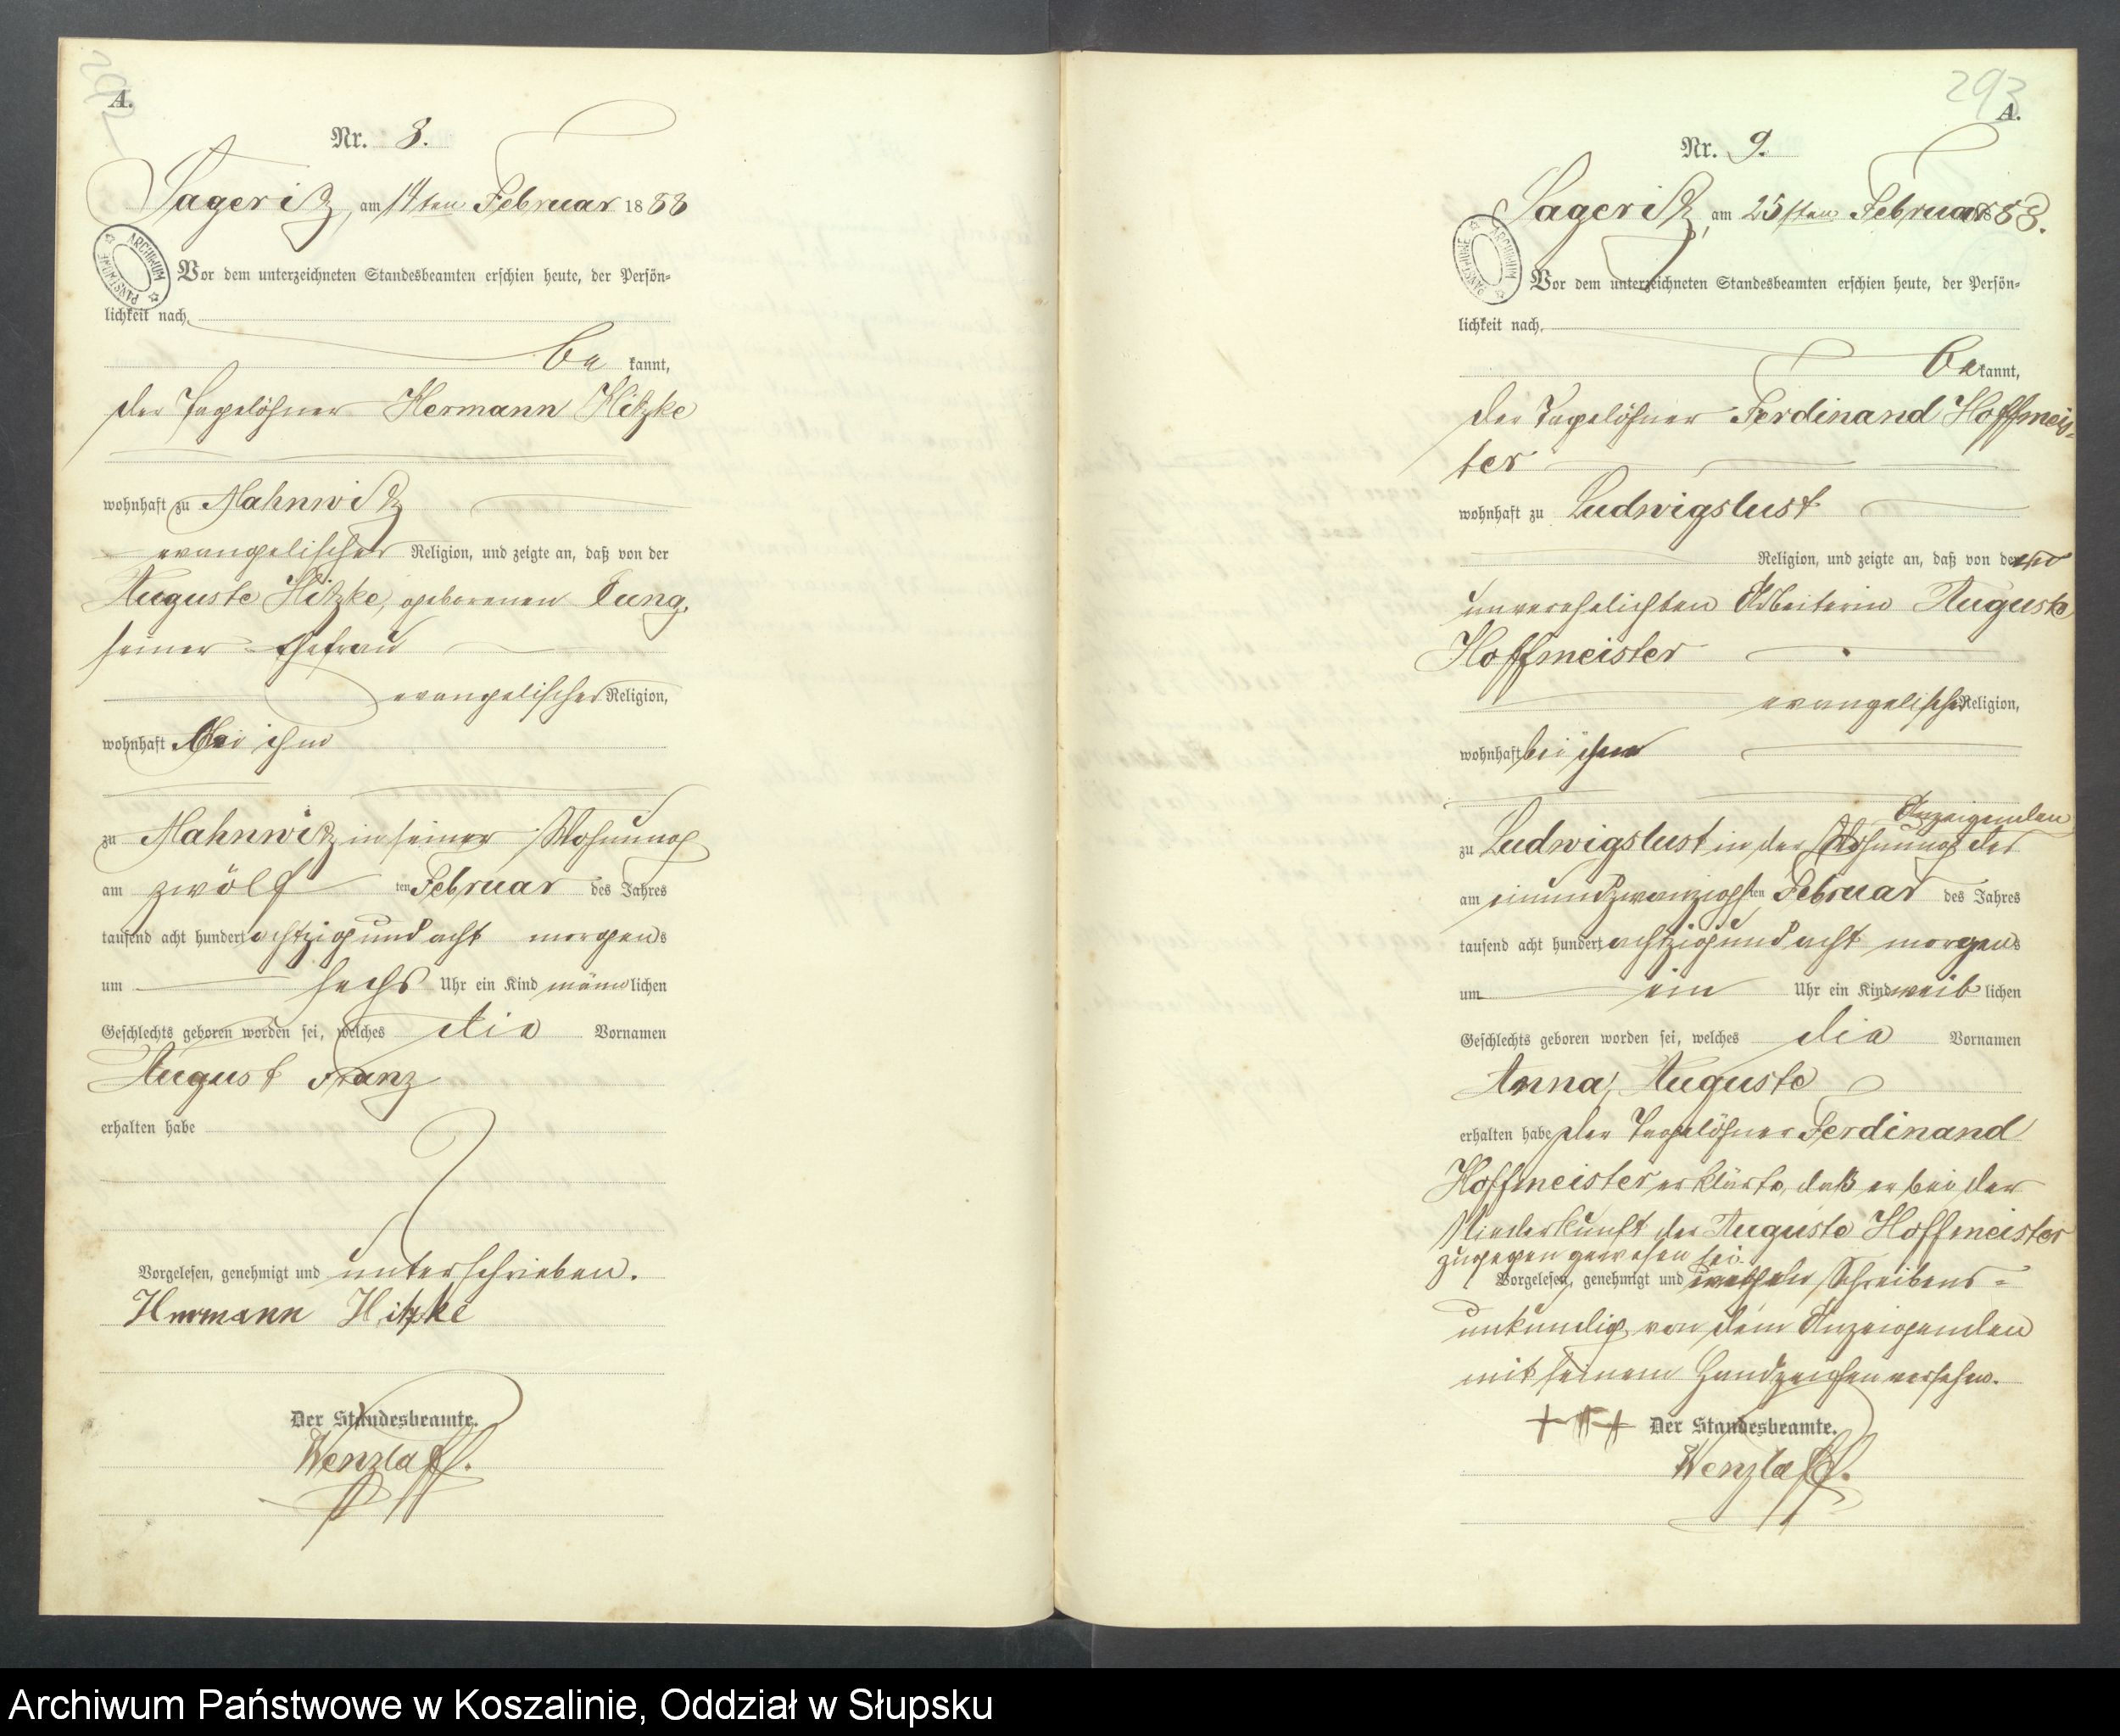 292
A.
Nr. 8.
Sageritz, am 14ten Februar 1888
ARCHIWUM PAŃSTWOWE
Vor dem unterzeichneten Standesbeamten erschien heute, der Persön-
lichkeit nach
be kannt,
der Tagelöhner Hermann Hitzke
wohnhaft zu Mahnwitz
evangelischer Religion, und zeigte an, daß von der
Auguste Hitzke, geborenen Jung,
seiner Ehefrau
evangelischer Religion,
wohnhaft bei ihm
zu Mahnwitz in seiner Wohnung
am zwölf ten Februar des Jahres
tausend acht hundert achtzig und acht morgens
um sechs Uhr ein Kind männlichen
Geschlechts geboren worden sei, welches die Vornamen
August Franz
erhalten habe
Vorgelesen, genehmigt und unterschrieben.
Hermann Hitzke
Der Standesbeamte.
Wenzlaff.
293
A.
Nr. 9.
Sageritz, am 25sten Februar 1888.
ARCHIWUM PAŃSTWOWE
Vor dem unterzeichneten Standesbeamten erschien heute, der Persön-
lichkeit nach
be kannt,
der Tagelöhner Ferdinand Hoffmeis-
ter
wohnhaft zu Ludwigslust
Religion, und zeigte an, daß von der
unverehelichten Arbeiterin Auguste
Hoffmeister
evangelischer Religion,
wohnhaft bei ihm
Anzeigenden
zu Ludwigslust in der Wohnung des
am einundzwanzigsten Februar des Jahres
tausend acht hundert achtzig und acht morgens
um ein Uhr ein Kind weiblichen
Geschlechts geboren worden sei, welches die Vornamen
Anna, Auguste
erhalten habe der Tagelöhner Ferdinand
Hoffmeister erklärte, daß er bei der
Niederkunft der Auguste Hoffmeister
zugegen gewesen sei.
Vorgelesen, genehmigt und wegen Schreibens-
unkundig von dem Anzeigenden
mit seinem Handzeichen versehen.
+++ Der Standesbeamte.
Wenzlaff.
Archiwum Państwowe w Koszalinie, Oddział w Słupsku